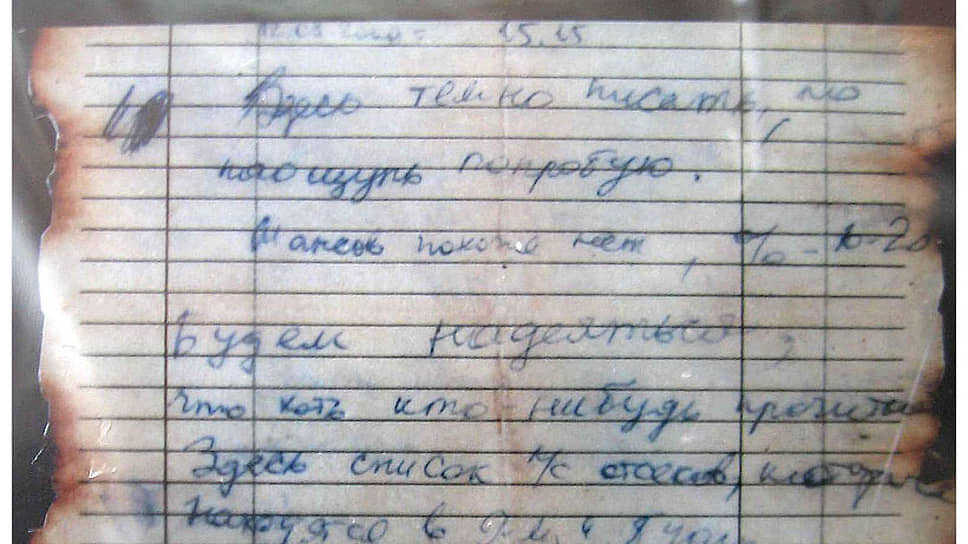 15.15
Здесь темно писать, но
наощупь попробую.
Шансов похоже нет, % 10-20
Будем надеяться,
что хоть кто-нибудь прочитает
Здесь список л/с отсеков, которые
находятся в 9-м и будут